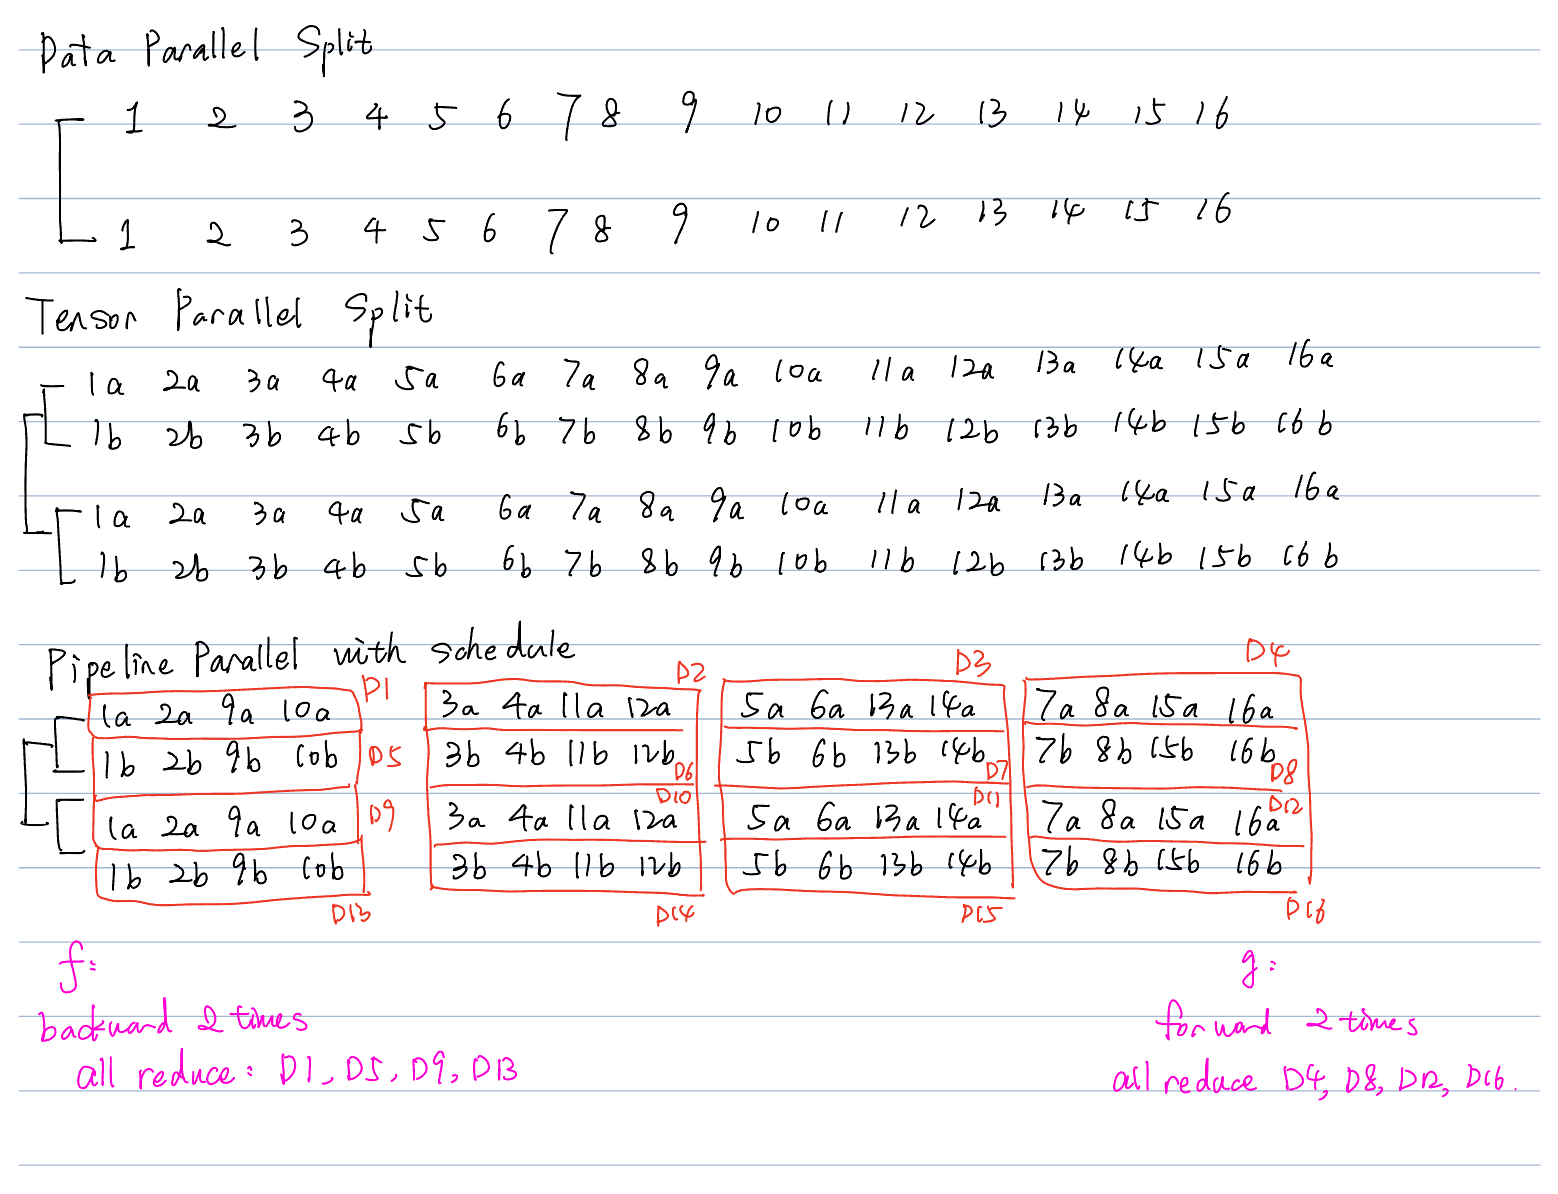 Data Parallel Split
1 2 3 4 5 6 7 8 9 10 11 12 13 14 15 16
1 2 3 4 5 6 7 8 9 10 11 12 13 14 15 16
Tensor Parallel Split
1a 2a 3a 4a 5a 6a 7a 8a 9a 10a 11a 12a 13a 14a 15a 16a
1b 2b 3b 4b 5b 6b 7b 8b 9b 10b 11b 12b 13b 14b 15b 16b
1a 2a 3a 4a 5a 6a 7a 8a 9a 10a 11a 12a 13a 14a 15a 16a
1b 2b 3b 4b 5b 6b 7b 8b 9b 10b 11b 12b 13b 14b 15b 16b
Pipeline Parallel with schedule
D1 D2 D3 D4
1a 2a 9a 10a 3a 4a 11a 12a 5a 6a 13a 14a 7a 8a 15a 16a
1b 2b 9b 10b D5 3b 4b 11b 12b D6 5b 6b 13b 14b D7 7b 8b 15b 16b D8
D9 D10 D11 D12
1a 2a 9a 10a 3a 4a 11a 12a 5a 6a 13a 14a 7a 8a 15a 16a
1b 2b 9b 10b 3b 4b 11b 12b 5b 6b 13b 14b 7b 8b 15b 16b
D13 D14 D15 D16
f:
backward 2 times
all reduce: D1, D5, D9, D13
g:
forward 2 times
all reduce D4, D8, D12, D16.